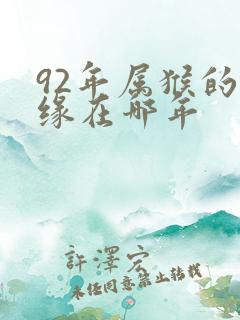 92年属猴的
缘在哪年
許澤宏
未经同意禁止转载